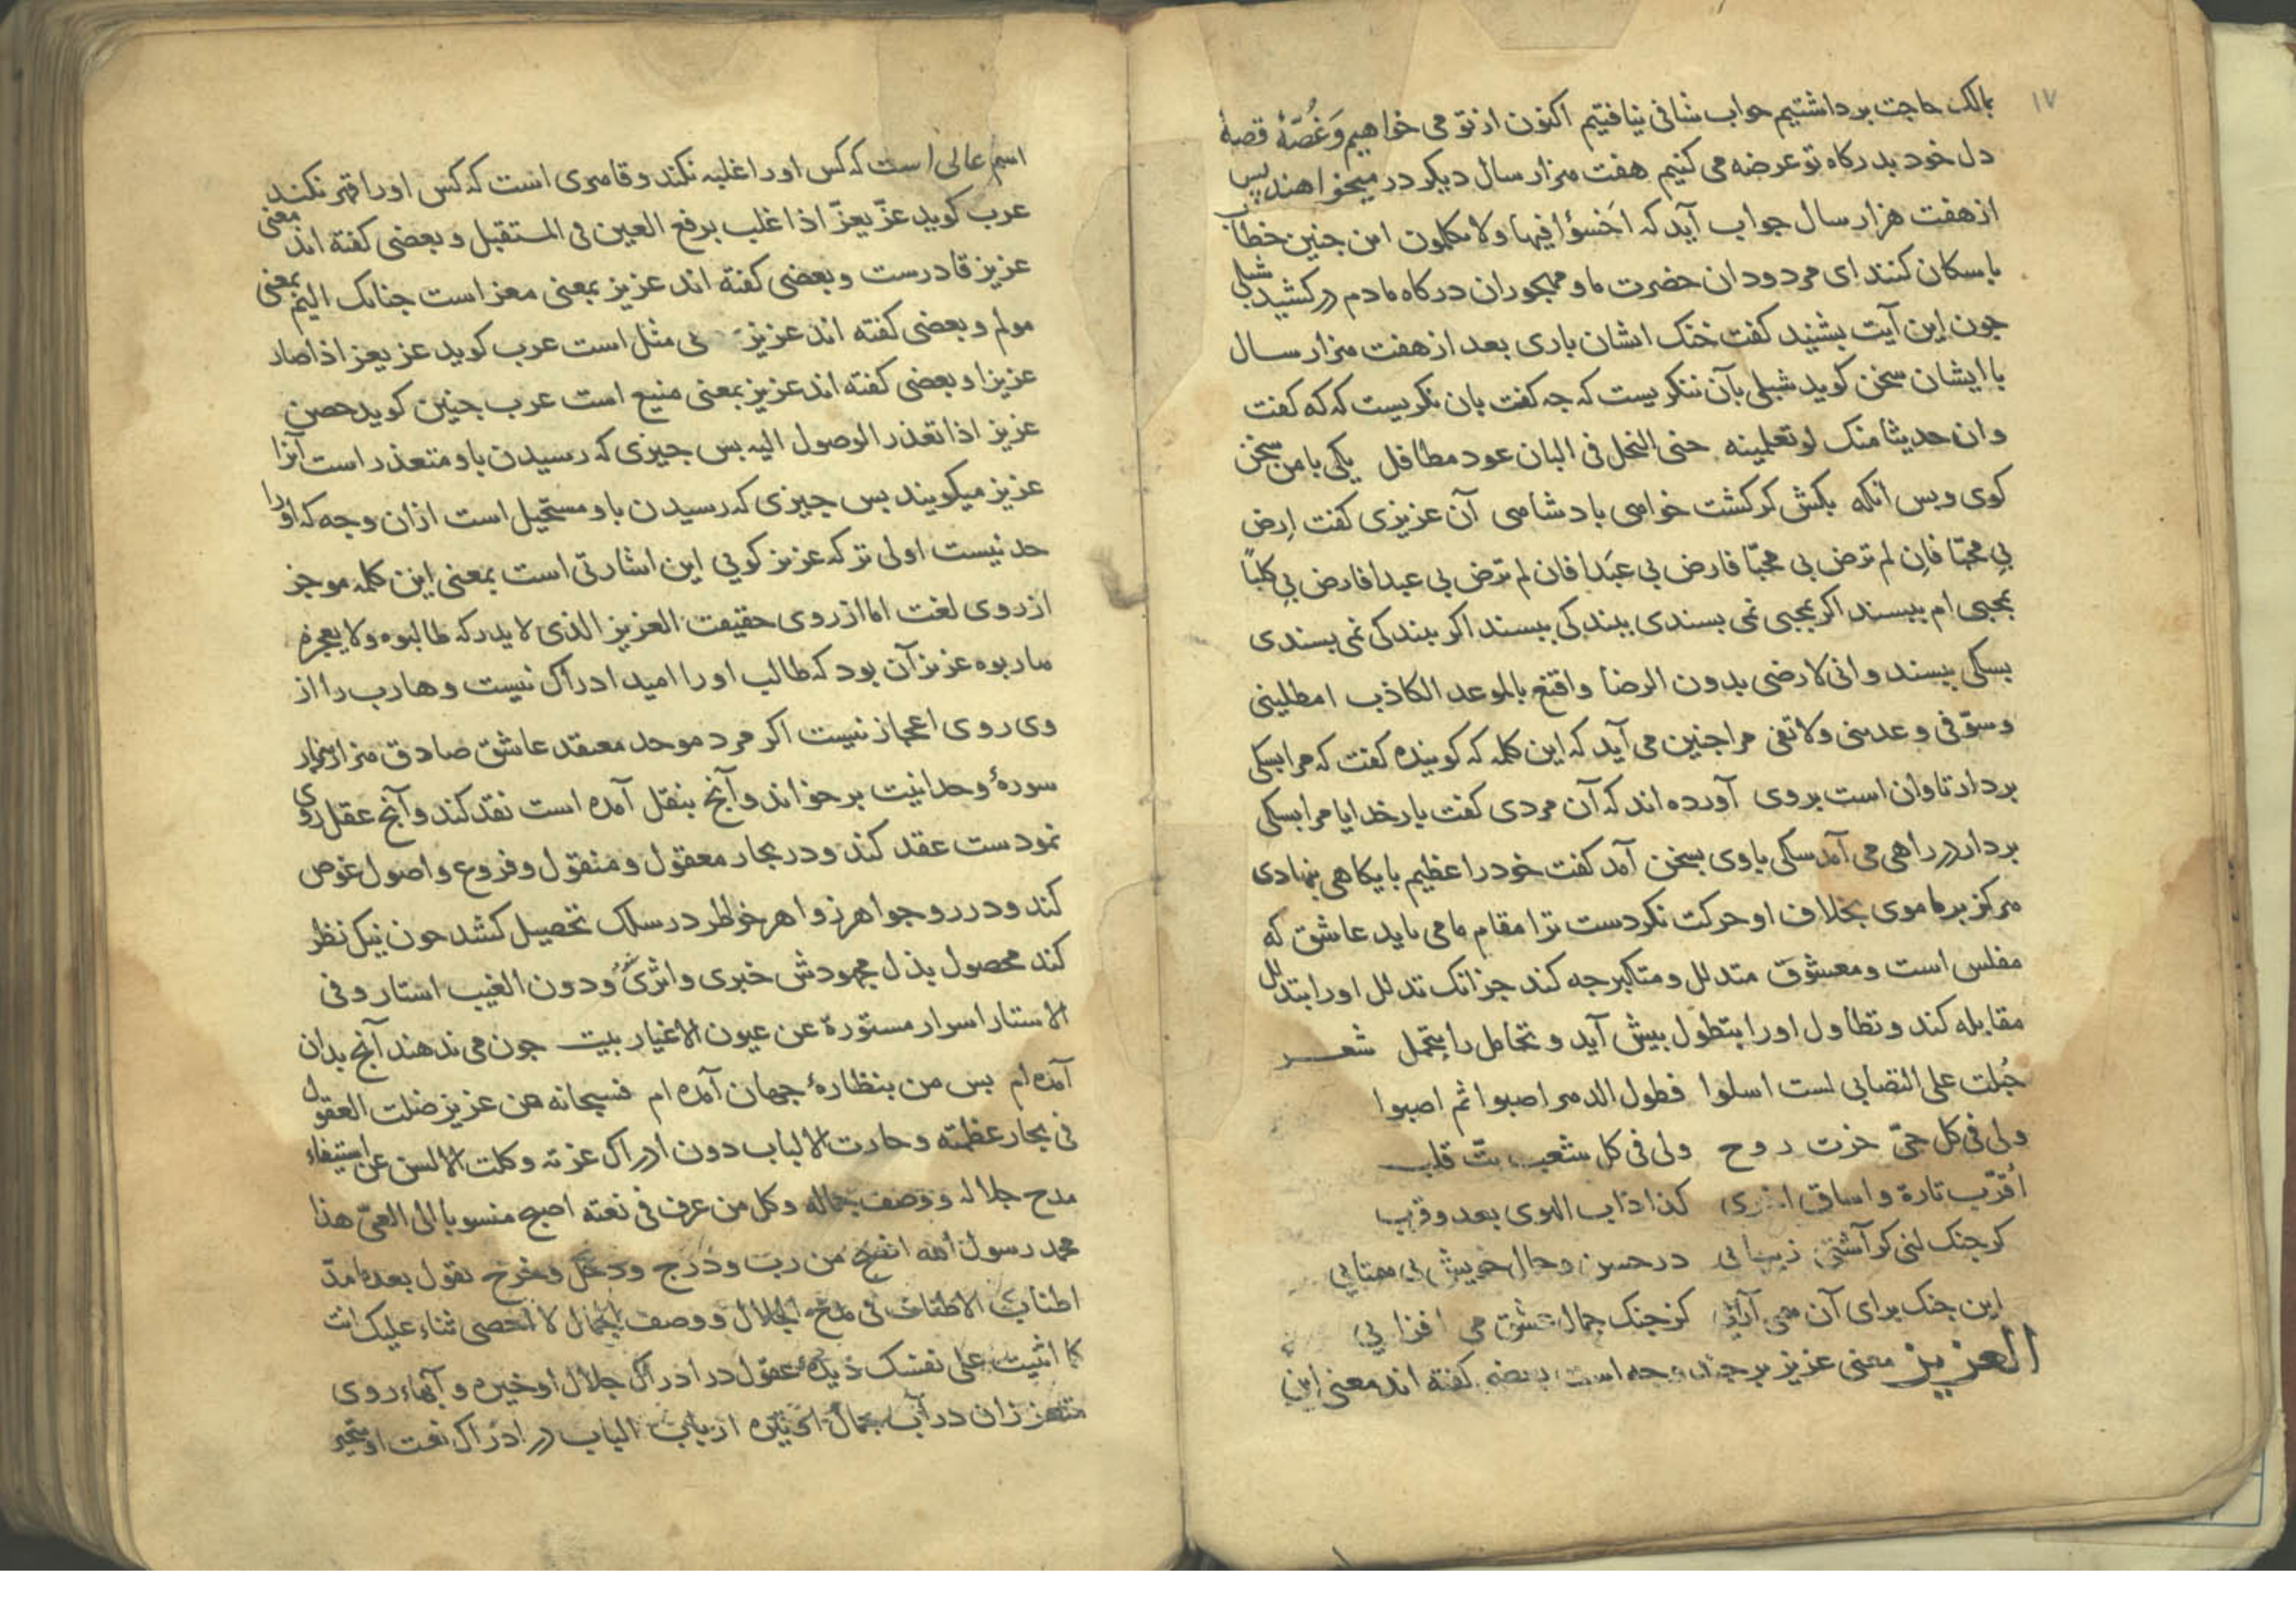 ۱۷
بمالک حاجت برداشتیم جواب شافی نیافتیم اکنون از تو می خواهیم وَغُصّهٔ قصهٔ
دل خود بدرکاه تو عرضه می کنیم هفت هزار سال دیکر در میخواهند پس
از هفت هزار سال جواب آید که اَخسؤا فیها ولا تکلمون این جنین خطاب
با سکان کنند ای مردودان حضرت ما و مهجوران درکاه ما دم در کشید شبلی
جون این آیت بشنید کفت خنک ایشان باری بعد از هفت هزار سال
با ایشان سخن کوید شبلی بآن ننکریست که جه کفت بان نکریست که که کفت
وان حدیثا منک لو تعلمینه جنی النحل فی البان عود مطافل یکی با من سخن
کوی و پس انکه بکش کر کشت خواهی بادشاهی آن عزیزی کفت اِرض
بی محبّا فاِن لم ترض بی محبّا فارض بی عبَدا فان لم ترض بی عبدا فارض بی کلباً
بمحبی ام ببسند اکر بمحبی نمی بسندی ببندکی ببسند اکر ببندکی نمی بسندی
بسکی ببسند وانی لارضی بدون الرضا واقنع بالموعد الکاذب امطلینی
وسوّفی وعدینی ولا تفی مرا جنین می آید که این کلمه که کوینده کفت که مرا بسکی
بردار تاوان است بروی آورده اند که آن مردی کفت بار خدایا مرا بسکی
بردار در راهی می آمد سکی با وی بسخن آمد کفت خود را عظیم بایکاهی بنهادی
هرکز بر ما موی بخلاف او حرکت نکردست ترا مقام ما می باید عاشق که
مفلس است و معشوق متدلل و متکبر جه کند جز انک تدلل او را بتذلل
مقابله کند و تطاول او را بتطول بیش آید و تحامل را بتحمل شعر
جُبلت علی التصابی لست اسلوا فطول الدهر اصبوا ثم اصبوا
ولی فی کل حیّ حزت روح ولی فی کل شعب بتّ قلب
اُقرّب تارة واساق اخری کذا داب الهوی بعد وقرب
کر جنک کنی کر آشتی زیبایی در حسن و جمال خویش بی همتایی
این جنک برای آن همی آرایی کز جنک جمال عشق می افزایی
العزیز معنی عزیز بر جند وجه است بعضی کفته اند معنی این
اسم عالی است که کس او را غلبه نکند و قاهری است که کس او را قهر نکند
عرب کوید عزّ یعزّ اذا غلب برفع العین فی المستقبل و بعضی کفته اند معنی
عزیز قادرست و بعضی کفته اند عزیز بمعنی معز است جنانک الیم بمعنی
مولم و بعضی کفته اند عزیز بی مثل است عرب کوید عز یعز اذا صار
عزیزا و بعضی کفته اند عزیز بمعنی منیع است عرب جنین کوید حصن
عزیز اذا تعذر الوصول الیه بس جیزی که رسیدن باو متعذر است آنرا
عزیز میکویند بس جیزی که رسیدن باو مستحیل است ازان وجه که او را
حد نیست اولی تر که عزیز کویی این اشارتی است بمعنی این کلمه موجز
از روی لغت اما از روی حقیقت العزیز الذی لا یدرکه طالبوه ولا یعجزه
هاربوه عزیز آن بود که طالب او را امید ادراک نیست و هارب را از
وی روی اعجاز نیست اکر مرد موحد معتقد عاشق صادق هزار هزار
سورهٔ وحدانیت بر خواند و آنج بنقل آمده است نقد کند و آنج عقل روی
نمودست عقد کند و در بحار معقول و منقول و فروع و اصول غوص
کند و درر و جواهر زواهر خواطر در سلک تحصیل کشد جون نیک نظر
کند محصول بذل مجهودش خبری و اثری ودون الغیب استار وفی
الاستار اسرار مستورة عن عیون الاغیار بیت جون می ندهند آنج بدان
آمده ام بس من بنظارهٔ جهان آمده ام فسبحانه من عزیز ضلت العقول
فی بحار عظمته وحارت الالباب دون ادراک عزته وکلت الالسن عن استیفاء
مدح جلاله ووصف جماله وکل من عرف فی نعته اصبح منسوبا الی العیّ هذا
محمد رسول الله افصح من ربّ ودرج ودخل وخرج یقول بعد ما مدّ
اطناب الاطناب فی مدح الجلال ووصف الجمال لا احصی ثناء علیک انت
کما اثنیت علی نفسک دیدهٔ عقول در ادراک جلال او خیره و آبهاء روی
متعززان در آب جمال او تیره ارباب الباب در ادراک نعت او متحیر